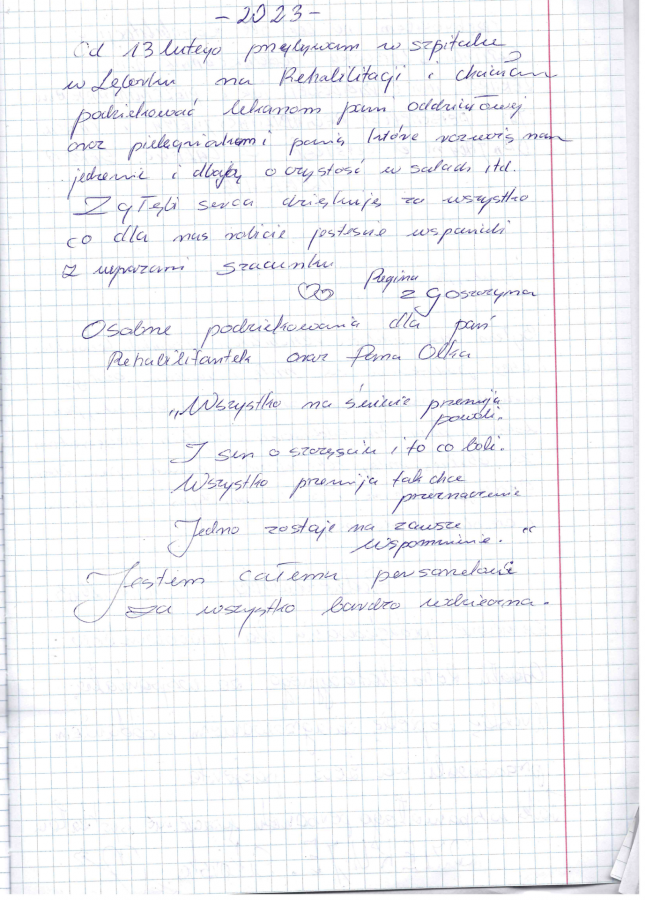 - 2023 -
Od 13 lutego przebywam w szpitalu
w Lęborku na Rehabilitacji i chciałam
podziekować lekarzom pani oddziałowej
oraz pielęgniarkom i panią które rozwożą nam
jedzenie i dbają o czystość w salach itd.
Z głębi serca dziękuję za wszystko
co dla nas robicie jesteście wspaniali
z wyrazami szacunku
Regina
z Gosczyna
Osobne podziekowania dla pań
Rehabilitantek oraz Pana Olka
„Wszystko na świecie przemija
powoli.
I sen o szczęściu i to co boli.
Wszystko przemija tak chce
przeznaczenie
Jedno zostaje na zawsze
wspomnienie."
Jestem całemu personelowi
za wszystko bardzo wdzieczna.